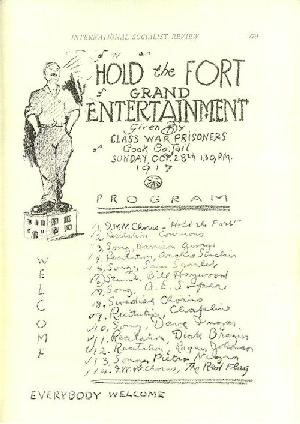 INTERNATIONAL SOCIALIST REVIEW
HOLD the FORT
GRAND
ENTERTAINMENT
Given By
CLASS WAR PRISONERS
Cook Co. Jail
SUNDAY, OCT. 28th 1:30 P.M.
1917
PROGRAM
WELCOME
1. I.W.W. Chorus - Hold the Fort
2. Recitation
3. Song, Harrison George
4. Recitation, Sinclair
5. Song, Sam Scarlett
6. Bill Haywood
7. Song, A. E. Soper
8. Swedish Chorus
9. Recitation, Chaplin
10. Song, Dave
11. Recitation, Dick Brazier
12. Recitation, Ragnar Johanson
13. Song, Pietro Nigra
14. I.W.W. Chorus, The Red Flag
EVERYBODY WELCOME